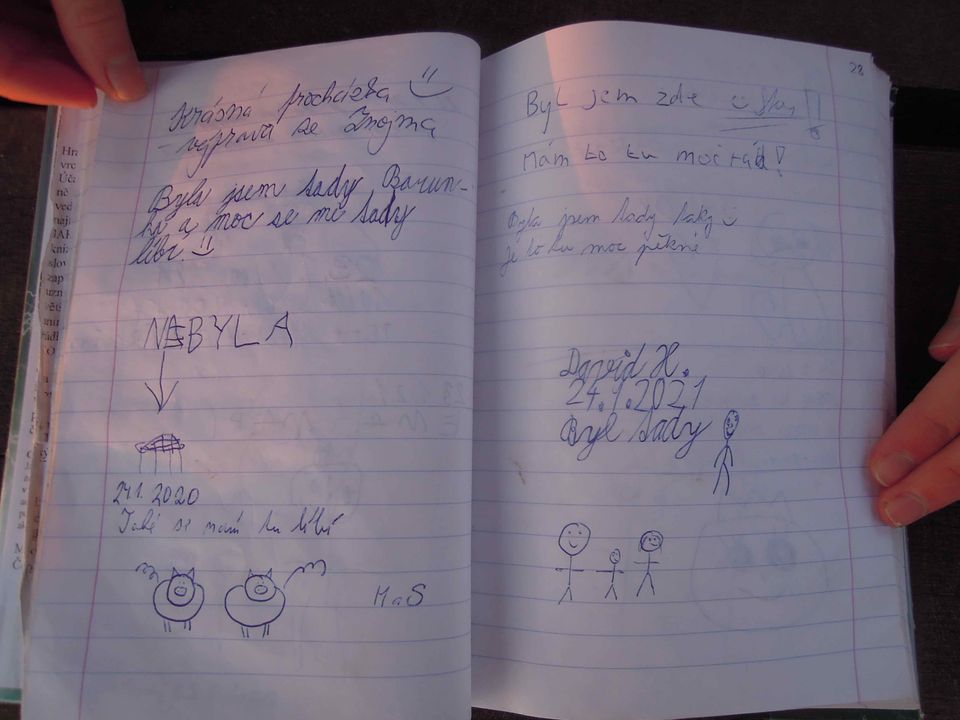 Krásná procházka
- výprava ze Znojma
Byla jsem tady Barun-
ka a moc se mi tady
líbí
NEBYLA
24.1.2020
Také se nám tu líbí
M a S
28
Byl jem zde
Mám to tu moc rád!
Byla jsem tady taky
je to tu moc pěkné
David H.
24.1.2021
Byl tady